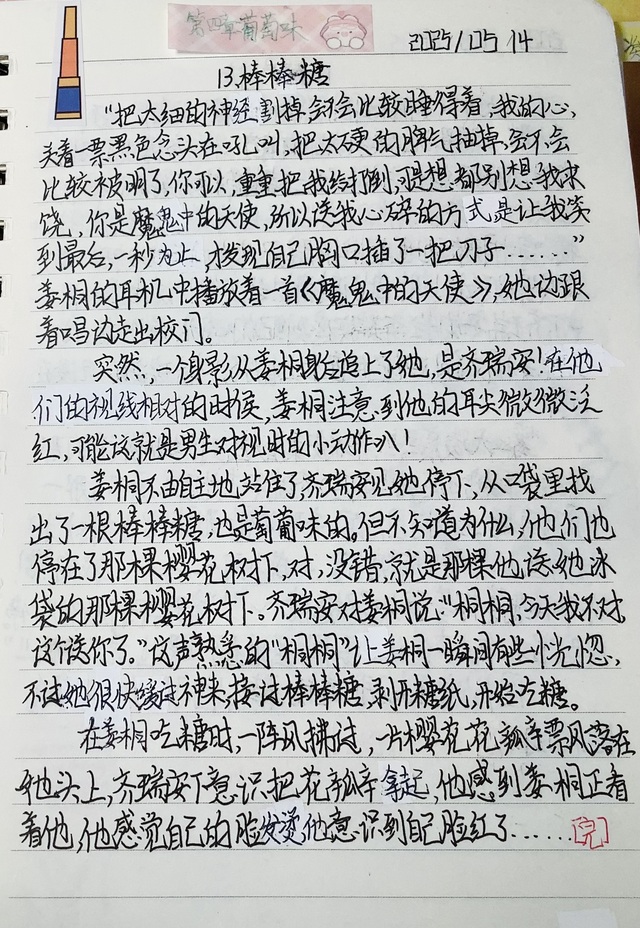 第四章葡萄味
2025/05 14
13.棒棒糖
“把太细的神经割掉会不会比较睡得着,我的心,
头着一票黑色念头在吼叫,把太硬的脾气抽掉会不会
比较被明了,你可以,重重把我给打倒,可是想都别想我求
饶,你是魔鬼中的天使,所以送我心碎的方式是让我笑
到最后,一秒为止,才发现自己胸口插了一把刀子......”
姜桐的耳机中播放着一首《魔鬼中的天使》,她边跟
着唱边走出校门。
突然,一个身影从姜桐身后追上了她,是齐瑞安!在他
们的视线相对的时候,姜桐注意到他的耳尖微微泛
红,可能这就是男生对视时的小动作八!
姜桐不由自主地站住了,齐瑞安见她停下,从口袋里找
出了一根棒棒糖,也是葡萄味的。但不知道为什么,他们也
停在了那棵樱花树下,对,没错,就是那棵他送她冰
袋的那棵樱花树下。齐瑞安对姜桐说:“桐桐,今天我不对,
这个送你了。”这声熟悉的“桐桐”让姜桐一瞬间有些恍惚,
不过她很快缓过神来,接过棒棒糖,剥开糖纸,开始吃糖。
在姜桐吃糖时,一阵风拂过,一片樱花花瓣飘落在
她头上,齐瑞安下意识把花瓣拿起,他感到姜桐正看
着他,他感觉自己的脸发烫他意识到自己脸红了......[完]